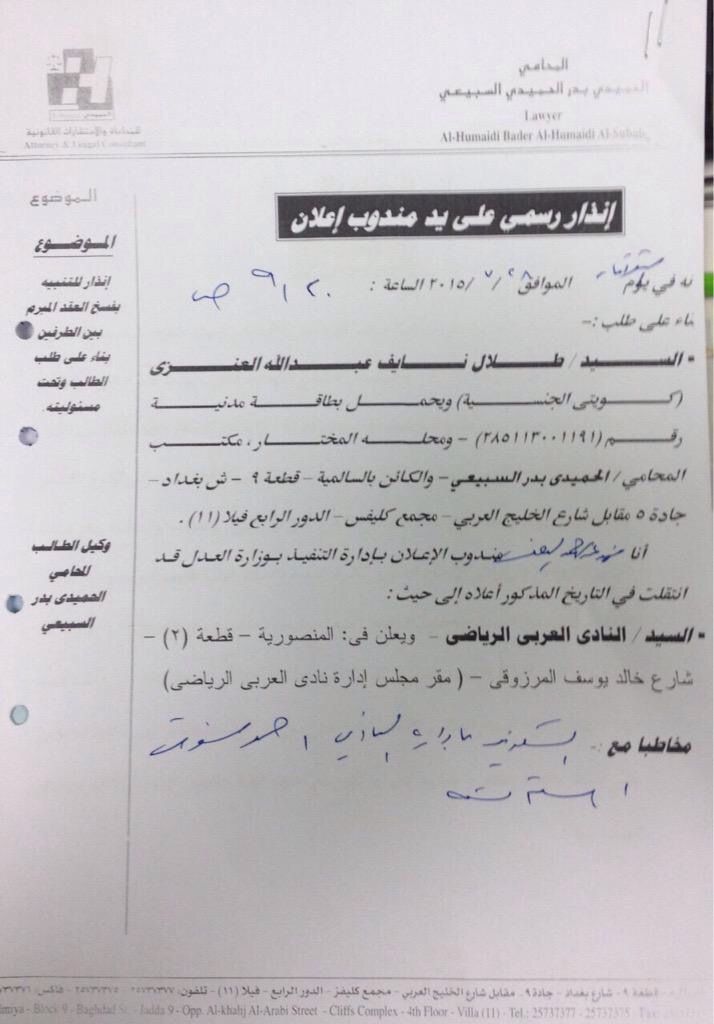 المحامي
الحميدي بدر الحميدي السبيعي
Lawyer
Al-Humaidi Bader Al-Humaidi Al-Subaie
للمحاماة والإستشارات القانونية
Attorney & Leagal Consultant
إنذار رسمى على يد مندوب إعلان
الموضوع
الموضوع
إنذار للتنبيه
بفسخ العقد المبرم
بين الطرفين
بناء على طلب
الطالب وتحت
مسئوليته.
وكيل الطالب
المحامي
الحميدى بدر
السبيعي
نه في يوم الموافق ٢٨/٧/٢٠١٥ الساعة : ٩,٢٠ ص
بناء على طلب :-
▪ السيد / طلال نايف عبدالله العنزى
(كويتى الجنسية) ويحمل بطاقة مدنية
رقم (٢٨٥١١٣٠٠١١٩١) - ومحله المختار، مكتب
المحامي / الحميدى بدر السبيعي - والكائن بالسالمية - قطعة ٩ - ش بغداد -
جادة ٥ مقابل شارع الخليج العربي - مجمع كليفس - الدور الرابع فيلا (١١).
أنا مندوب الإعلان بإدارة التنفيذ بوزارة العدل قد
انتقلت في التاريخ المذكور أعلاه إلى حيث :
▪ السيد / النادى العربى الرياضى - ويعلن فى: المنصورية - قطعة (٢) -
شارع خالد يوسف المرزوقى - ( مقر مجلس إدارة نادى العربى الرياضى)
مخاطبا مع :-
قطعة ٩ - شارع بغداد - جادة ٩ - مقابل شارع الخليج العربي - مجمع كليفز - الدور الرابع - فيلا (١١) - تلفون: ٢٥٧٣٧٣٧٧ - ٢٥٧٣٧٣٧٥ - فاكس:
lmiya - Block 9 - Baghdad St. - Jadda 9 - Opp. Al-khalij Al-Arabi Street - Cliffs Complex - 4th Floor - Villa (11) - Tel.: 25737377 - 25737375 - Fax: